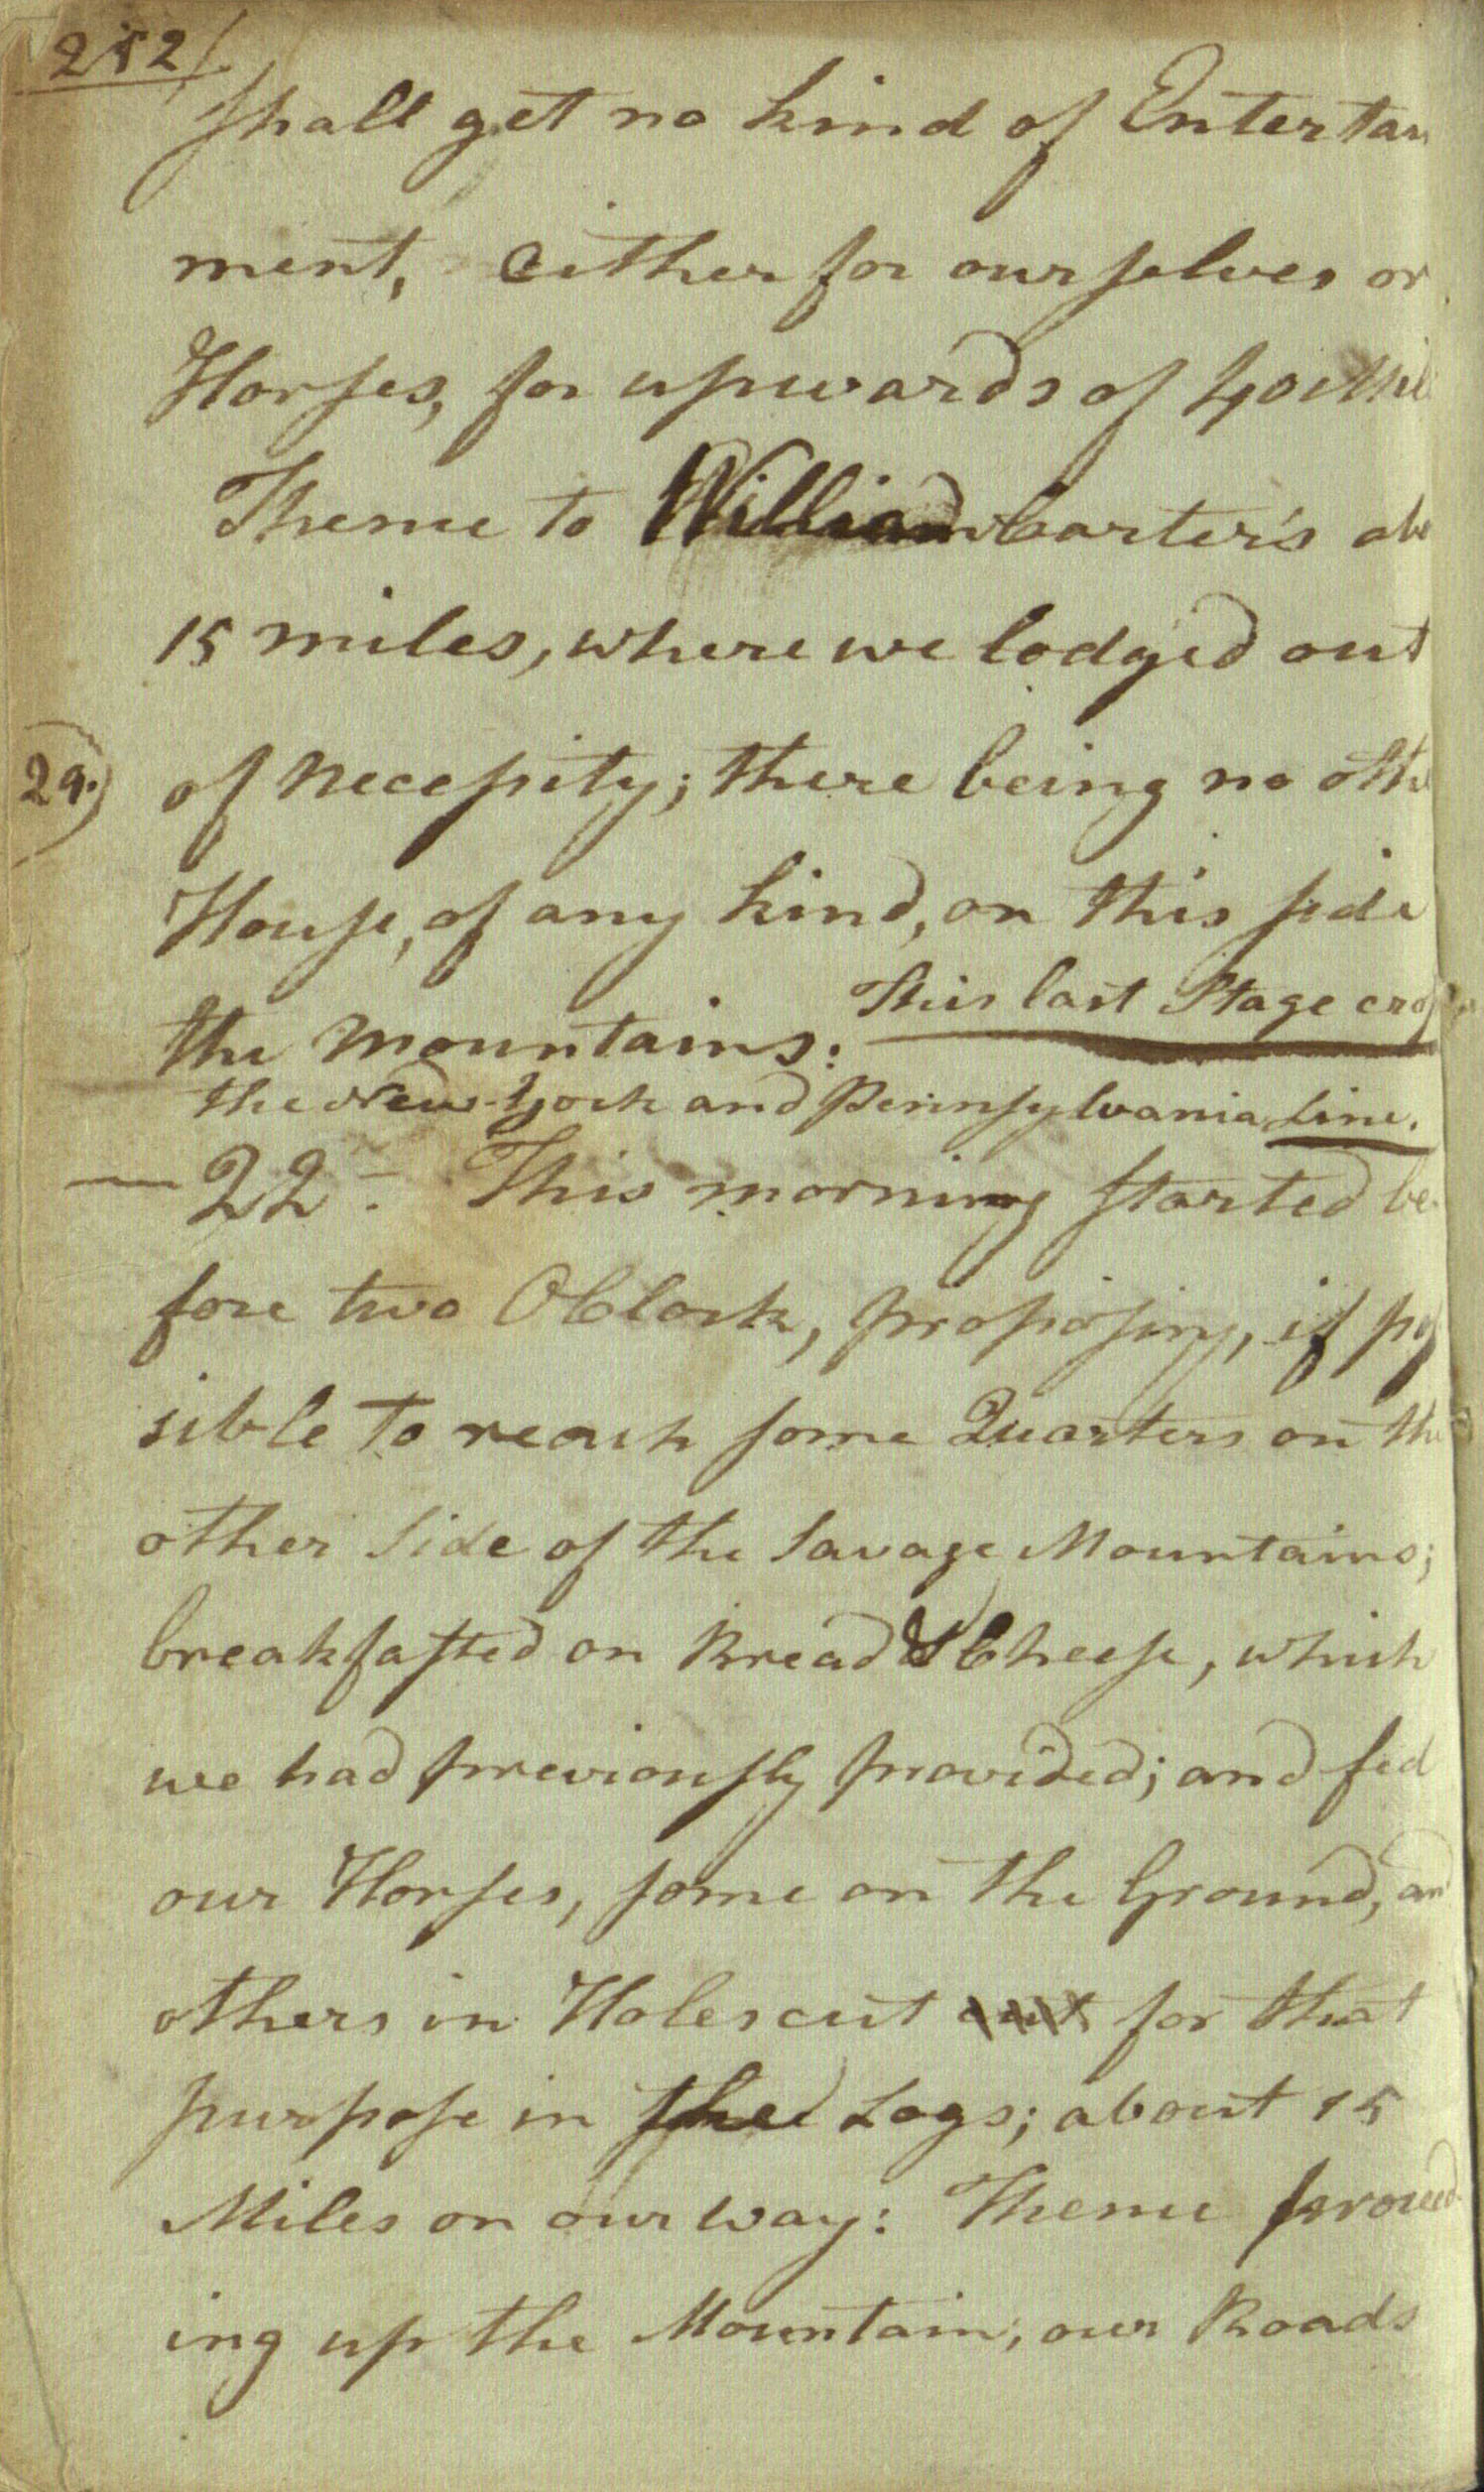 252
shall get no kind of Entertain
ment, either for ourselves or
Horses, for upwards of 40 Mil
Thence to William Carter's abo
15 miles, where we lodged out
29. of necessity; there being no othe
House, of any kind, on this side
the mountains. This last Stage
the New-York and Pennsylvania Line.
— 22 - This morning started be-
fore two OClock, proposing, if pos
sible to reach some Quarters on the
other Side of the Savage Mountains;
breakfasted on Bread & Cheese, which
we had previously provided; and fed
our Horses, some on the Ground, and
others in Holes cut out for that
purpose in Logs; about 15
Miles on our way: Thence proceed
ing up the Mountain, our Roads